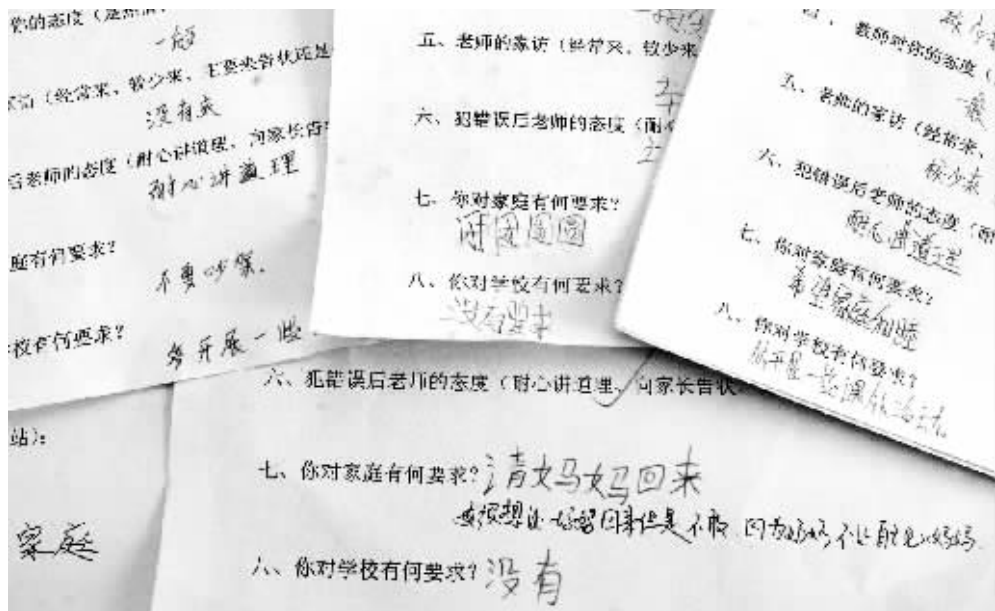 你的态度（
一般
（经常来、较少来、主要来告状还是
没有来
后老师的态度（耐心讲道理、向家长告
耐心讲道理
庭有何要求？
不要吵架.
校有何要求？
多开展一些
五、老师的家访（经常来、较少来
六、犯错误后老师的态度（耐心
七、你对家庭有何要求？
团圆
八、你对学校有何要求？
没有要求
教师对你的态度（
一般
五、老师的家访（经常来、
较少来
六、犯错误后老师的态度（耐
耐心讲道理
七、你对家庭有何要求？
希望家庭和睦
八、你对学校有何要求？
开展一些课外活动
站）：
家庭
六、犯错误后老师的态度（耐心讲道理、向家长告状
七、你对家庭有何要求？请妈妈回来
回来但是不敢
八、你对学校有何要求？没有